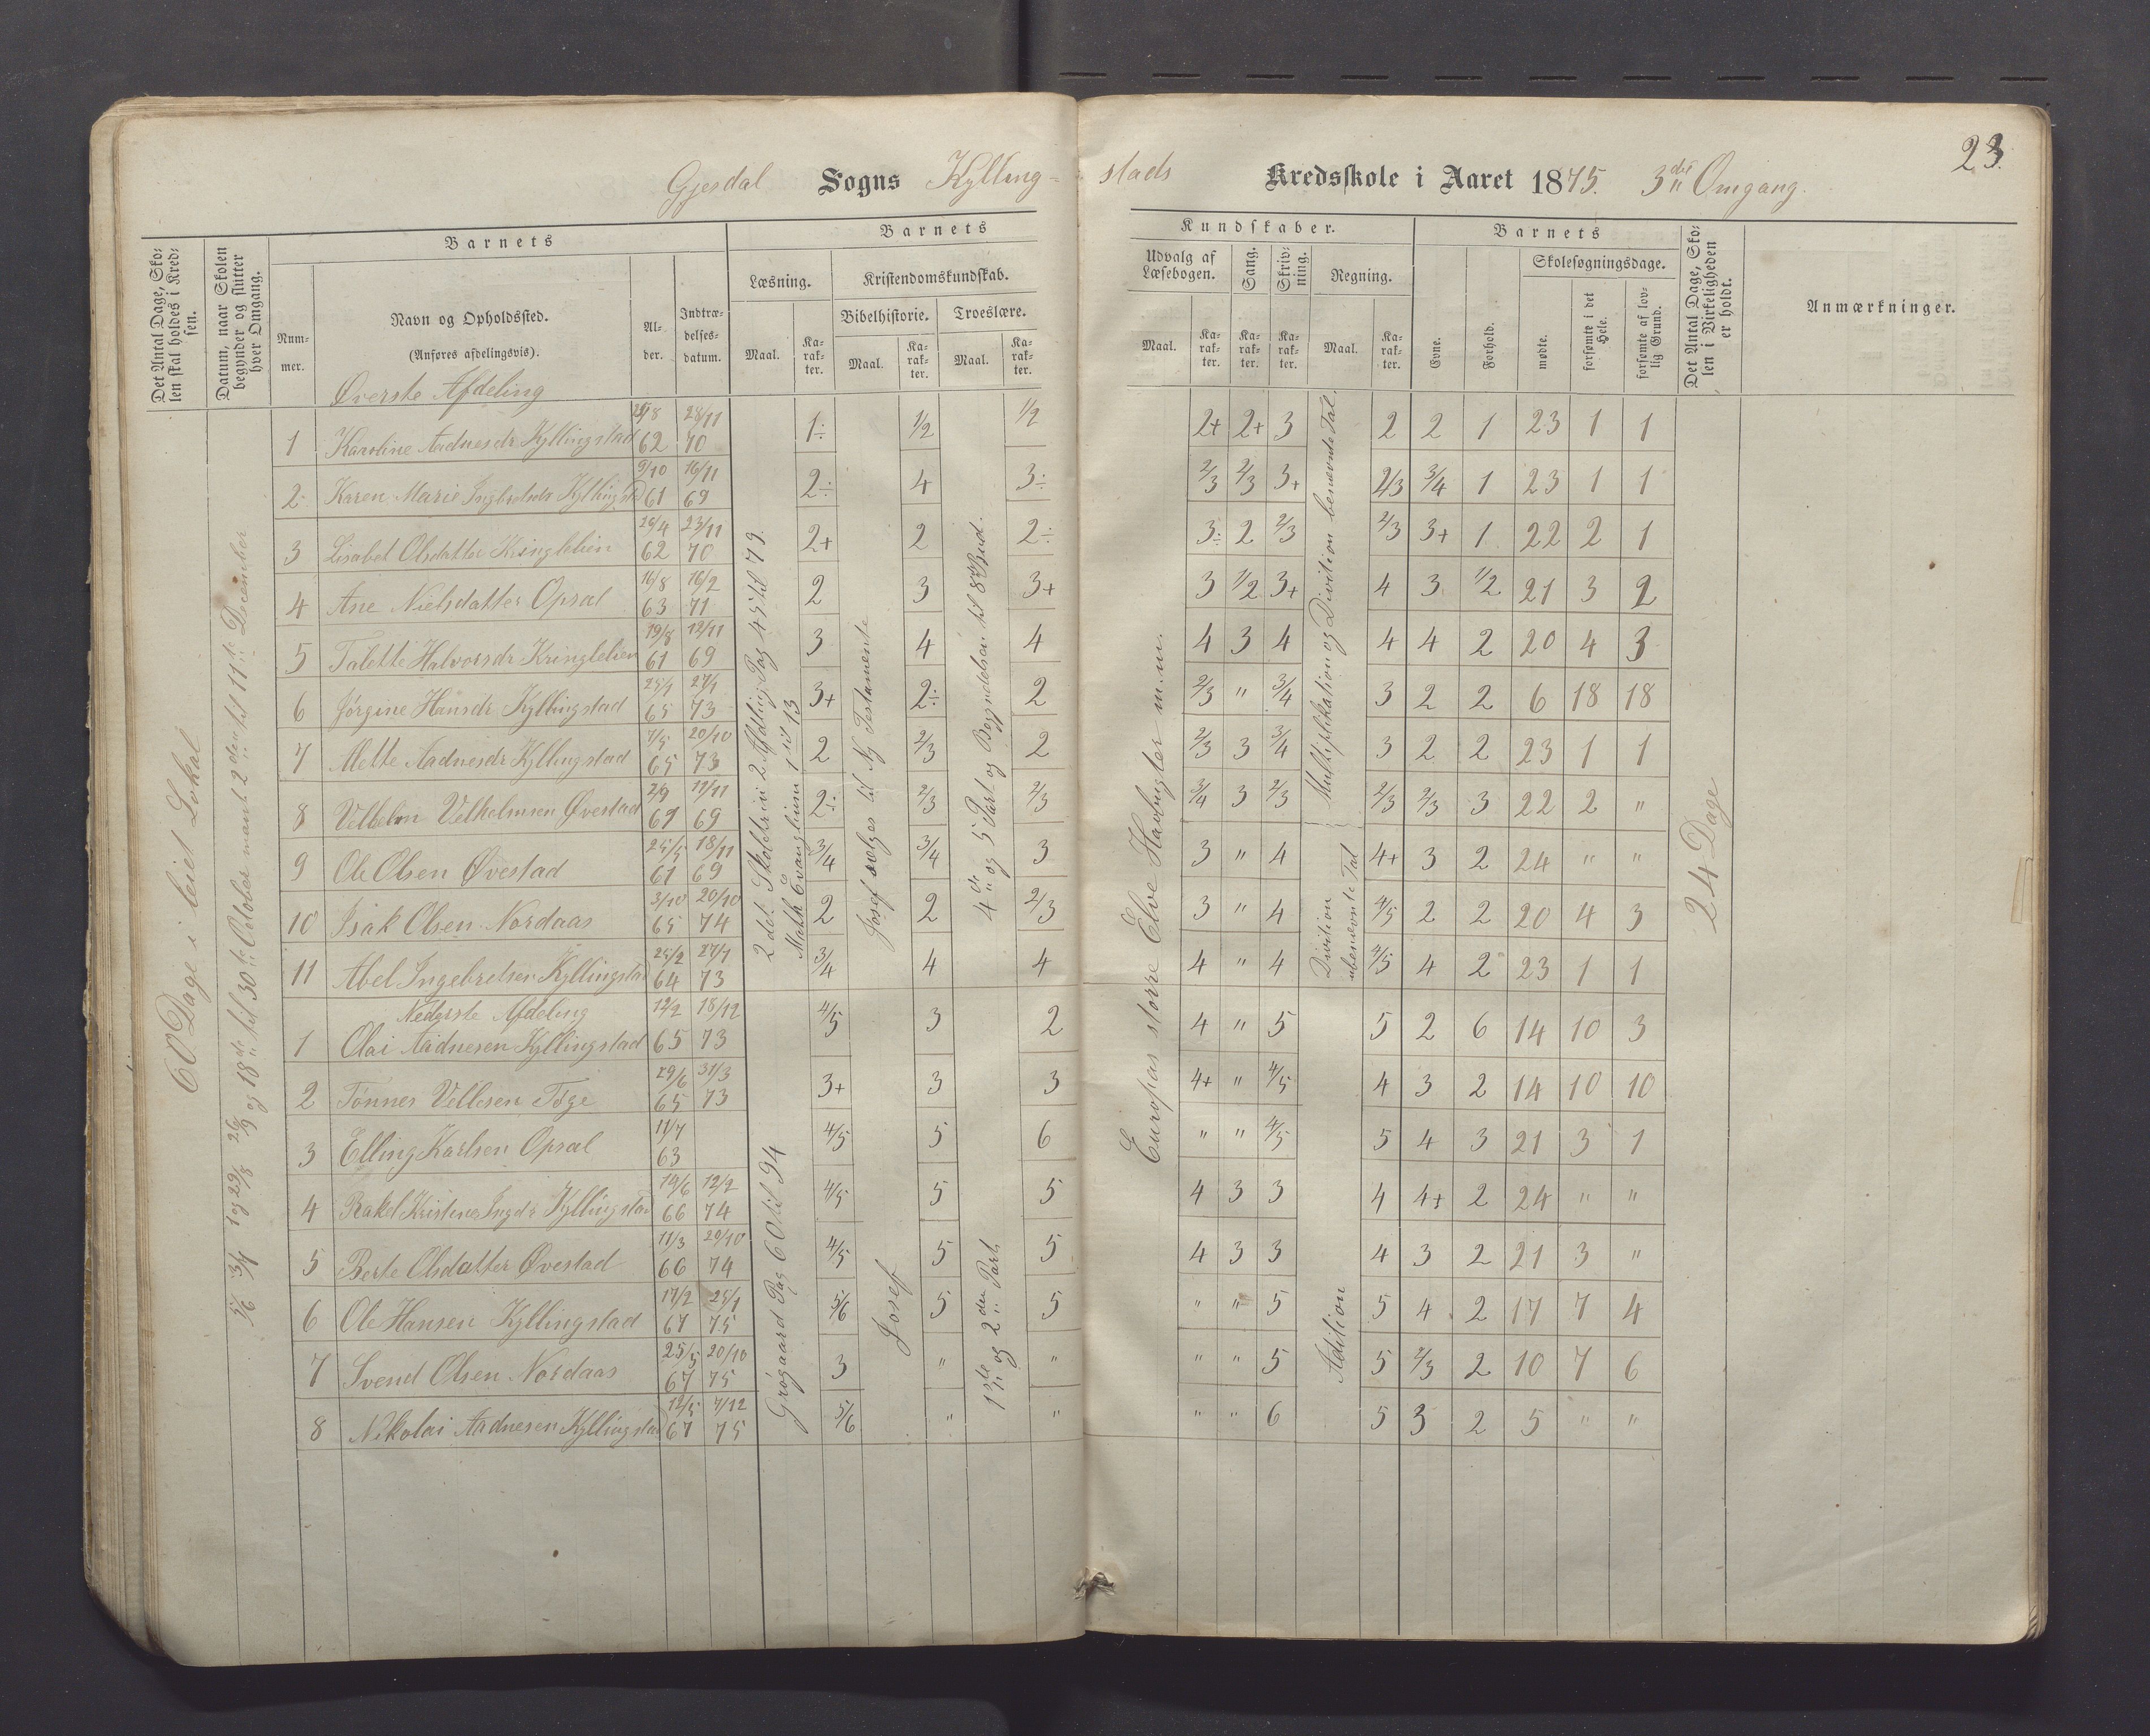 23.
Gjesdal Sogns Kylling- stads Kredsskole i Aaret 1875. 3die Omgang.
Det Antal Dage, Skolen skal holdes i Kredsen.
Datum, naar Skolen begynder og slutter hver Omgang.
Barnets
Nummer.
Navn og Opholdssted.
(Anføres afdelingsvis).
Alder.
Indtrædelsesdatum.
Barnets Kundskaber.
Læsning.
Maal.
Karakter.
Kristendomskundskab.
Bibelhistorie.
Maal.
Karakter.
Troeslære.
Maal.
Karakter.
Udvalg af Læsebogen.
Maal.
Karakter.
Sang.
Karakter.
Skrivning.
Karakter.
Regning.
Maal.
Karakter.
Barnets
Evne.
Forhold.
Skolesøgningsdage.
mødte.
forsømte i det Hele.
forsømte af lovlig Grund.
Det Antal Dage, Skolen i Virkeligheden er holdt.
Anmærkninger.
60 Dage i leiet Lokal
Øverste Afdeling
1 Karoline Aadnesdr Kyllingstad 62 28/11 70 1÷ 1/2 1/2 2+ 2+ 3 2 2 1 23 1 1
2 Karen Marie Kyllingstd 9/10 61 16/11 69 2÷ 4 3÷ 2/3 2/3 3+ 2/3 3/4 1 23 1 1
3 Lisabet Olsdatter Kringlelien 26/4 62 23/11 70 2+ 2 2÷ 3÷ 2 2/3 2/3 3+ 1 22 2 1
4 Ane Nielsdatter Opsal 16/8 63 16/2 71 2 3 3+ 3 1/2 3+ 4 3 1/2 21 3 2
5 Talette Halvorsdr Kringlelien 19/8 61 12/11 69 3 4 4 4 3 4 4 4 2 20 4 3
6 Jørgine Hansdr Kyllingstad 25/1 65 27/1 73 3+ 2÷ 2 2/3 " 3/4 3 2 2 6 18 18
7 Mette Aadnesdr Kyllingstad 7/5 65 20/10 73 2 2/3 2 2/3 3 3/4 3 2 2 23 1 1
8 Velhelm Velhelmsen Øvestad 2/9 61 12/11 69 2÷ 2/3 2/3 3/4 3 2/3 2/3 2/3 3 22 2 "
9 Ole Olsen Øvestad 25/5 61 18/11 69 3/4 3/4 3 3 " 4 4+ 3 2 24 " "
10 Isak Olsen Nordaas 3/10 65 20/10 74 2 2 2/3 3 " 4 4/5 2 2 20 4 3
11 Abel Ingebretsen Kyllingstad 25/2 64 27/1 73 3/4 4 4 4 " 4 4/5 4 2 23 1 1
Nederste Afdeling
1 Olai Aadnesen Kyllingstad 12/2 65 18/12 73 4/5 3 2 4 " 5 5 2 6 14 10 3
2 Tønnes Vellesen Toge 29/6 65 31/3 73 3+ 3 3 4+ " 4/5 4 3 2 14 10 10
3 Elling Karlsen Opsal 11/7 63 4/5 5 6 " " 4/5 5 4 3 21 3 1
4 Rakel Kristine Ingdr Kyllingstad 19/6 66 12/2 74 4/5 5 5 4 3 3 4 4+ 2 24 " "
5 Berte Olsdatter Øvestad 11/3 66 29/10 74 4/5 5 5 4 3 3 4 3 2 21 3 "
6 Ole Hansen Kyllingstad 17/2 67 25/1 75 5/6 5 5 " " 5 5 4 2 17 7 4
7 Svend Olsen Nordaas 25/5 67 20/10 75 3 " " " " 5 5 2/3 2 10 7 6
8 Nikolai Aadnesen Kyllingstad 12/5 67 7/12 75 5/6 " " " " 6 5 3 2 5 " "
2det Skoletrin 2 Afdeling Pag 45 til 79.
Math Evanglium 1 til 13
Grøgaard Pag 60 til 94
Josef sælges til Ny Testamente
Josef
4de og 5 Part og Begyndelsen til 8de Bud.
1ste og 2den Part
Europas større Elve Havbugter m.m.
Multiplikation og Divition benevnte Tal.
Divition ubenevnte Tal
Adition
24 Dage